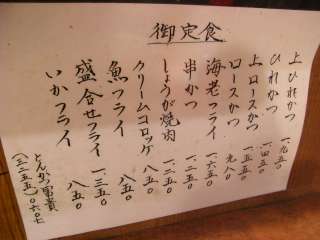 御定食
上ひれかつ 一、九五〇
ひれかつ 一、四五〇
上ロースかつ 一、五五〇
ロースかつ 九八〇
海老フライ 一、六五〇
串かつ 一、二五〇
しょうが焼肉 一、二五〇
クリームコロッケ 八五〇
魚フライ 八五〇
盛合せフライ 一、三五〇
いかフライ 八五〇
とんかつ 富貴
(三二五五)〇六〇七